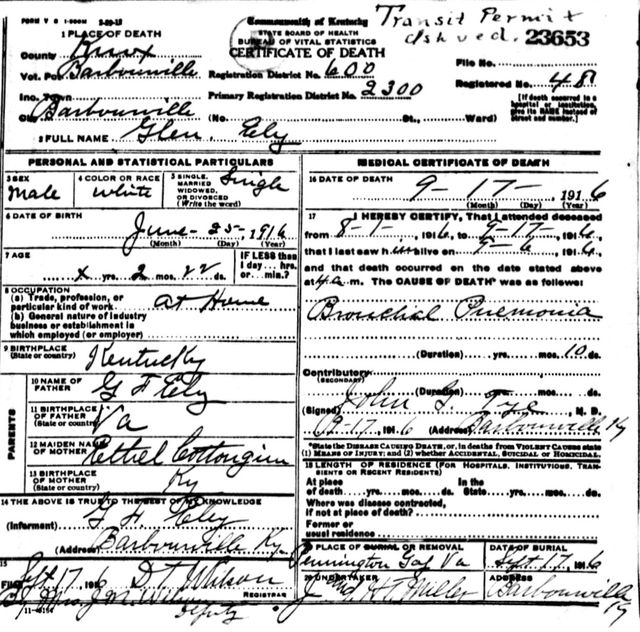 FORM V S 1-500M 3-20-15
Transit Permit
Commonwealth of Kentucky
STATE BOARD OF HEALTH
BUREAU OF VITAL STATISTICS
CERTIFICATE OF DEATH
23653
1 PLACE OF DEATH
County Knox
Vot. Pct. Barbourville
Registration District No. 600
File No.
Inc. Town
Primary Registration District No. 2300
Registered No. 48
City Barbourville (No. St., Ward)
[If death occurred in a hospital or institution, give its NAME instead of street and number.]
2 FULL NAME Glen Ely
PERSONAL AND STATISTICAL PARTICULARS
3 SEX Male
4 COLOR OR RACE White
5 SINGLE, MARRIED, WIDOWED, OR DIVORCED (Write the word) Single
6 DATE OF BIRTH
June 25, 1916
(Month) (Day) (Year)
7 AGE
x yrs. 2 mos. 22 ds.
IF LESS than 1 day... hrs. or...min.?
8 OCCUPATION
(a) Trade, profession, or particular kind of work At Home
(b) General nature of industry business or establishment in which employed (or employer)
9 BIRTHPLACE (State or country) Kentucky
PARENTS
10 NAME OF FATHER G F Ely
11 BIRTHPLACE OF FATHER (State or country) Va
12 MAIDEN NAME OF MOTHER Ethel Cottongim
13 BIRTHPLACE OF MOTHER (State or country) Ky
14 THE ABOVE IS TRUE TO THE BEST OF MY KNOWLEDGE
(Informant) G F. Ely
(Address) Barbourville Ky.
15
Filed Sept. 17 1916 D T Wilson
REGISTRAR
Deputy
11-4019
MEDICAL CERTIFICATE OF DEATH
16 DATE OF DEATH
9-17-, 1916
(Month) (Day) (Year)
17 I HEREBY CERTIFY, That I attended deceased
from 8-1-, 1916, to 9-17-, 1916,
that I last saw him alive on 9-6, 1916,
and that death occurred on the date stated above
at 4 a m. The CAUSE OF DEATH* was as follows:
Bronchial Pnemonia
(Duration) yrs. mos. 10 ds.
Contributory (SECONDARY)
(Duration) yrs. mos. ds.
(Signed) John G. M. D.
17, 1916 (Address) Barbourville Ky
*State the DISEASE CAUSING DEATH, or, in deaths from VIOLENT CAUSES state (1) MEANS OF INJURY; and (2) whether ACCIDENTAL, SUICIDAL or HOMICIDAL.
18 LENGTH OF RESIDENCE (FOR HOSPITALS, INSTITUTIONS, TRANSIENTS OR RECENT RESIDENTS)
At place of death yrs. mos. ds. In the State yrs. mos. ds.
Where was disease contracted, if not at place of death?
Former or usual residence
19 PLACE OF BURIAL OR REMOVAL
Pennington Gap Va
DATE OF BURIAL
Sept. 17, 1916
20 UNDERTAKER
H T Miller
ADDRESS
Barbourville Ky